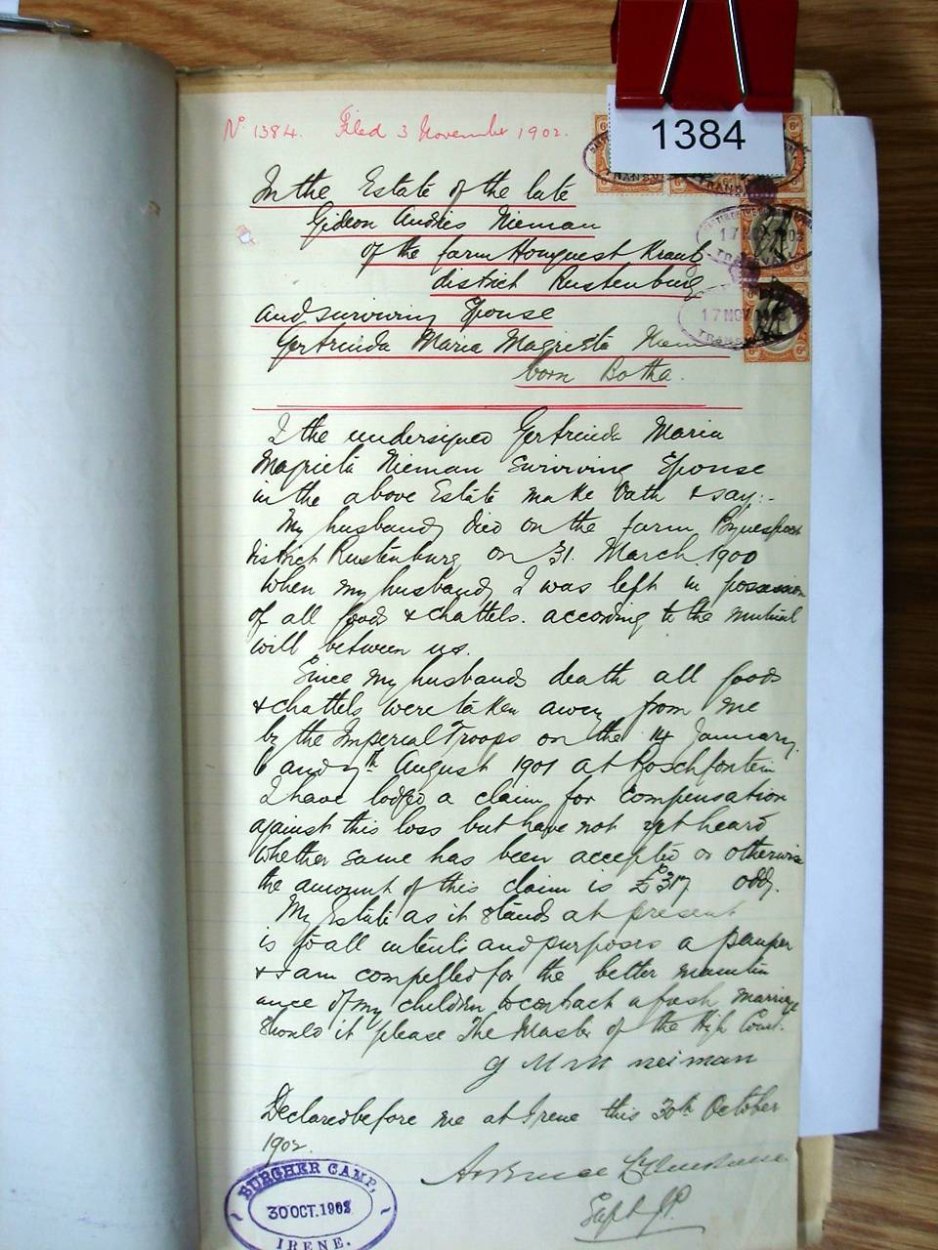 1384
No 1384. Filed 3 November 1902.
In the Estate of the late
Gideon Andries Nieman
of the farm Kraal
district Rustenburg
and surviving Spouse
Gertruida Maria Magrieta
born Botha.
I the undersigned Gertruida Maria
Magrieta Nieman surviving Spouse
in the above Estate make Oath & say:-
My husband died on the farm
District Rustenburg on 31 March 1900
When my husband, I was left in possession
of all goods & chattels. according to the mutual
will between us.
Since my husbands death all goods
& chattels were taken away from me
by the Imperial Troops on the 14 January
6 and 7th August 1901 at
I have lodged a claim for compensation
against this loss but have not yet heard
whether same has been accepted or otherwise
the amount of this claim is £317 odd.
My Estate as it stands at present
is to all intents and purposes a pauper
& I am compelled for the better maintin
ance of my children to contract a fresh marriage
should it please The Master of the High Court.
G M M neiman
Declared before me at Irene this 30th October
1902.
Capt JP.
BURGHER CAMP,
30 OCT. 1902
IRENE.
17 NOV
TRANSVAAL
17 NOV